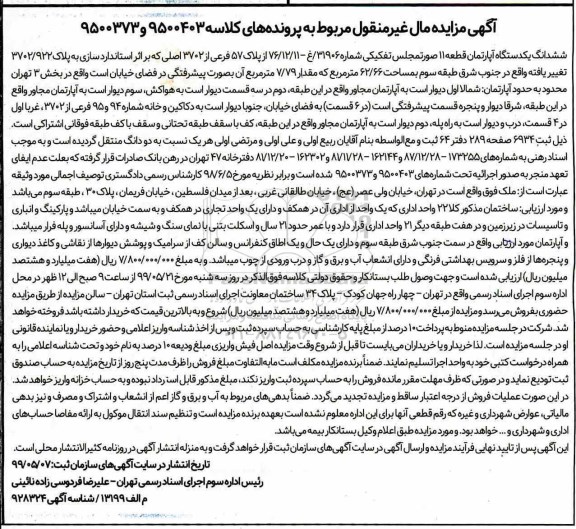 آگهی مزایده مال غیرمنقول مربوط به پرونده‌های کلاسه ۹۵۰۰۴۰۳ و ۹۵۰۰۳۷۳
ششدانگ یکدستگاه آپارتمان قطعه ۱۱ صورتمجلس تفکیکی شماره ۳۱۹۰۶/غ – ۷۶/۱۲/۱۱ از پلاک ۵۷ فرعی از ۳۷۰۲ اصلی که بر اثر استاندارد سازی به پلاک ۳۷۰۲/۹۲۲
تغییر یافته واقع در جنوب شرق طبقه سوم بمساحت ۶۲/۶۶ مترمربع که مقدار ۷/۷۹ مترمربع آن بصورت پیشرفتگی در فضای خیابان است واقع در بخش ۳ تهران
محدود به حدود آپارتمان: شمالا اول دیوار است به آپارتمان مجاور واقع در این طبقه، دوم در سه قسمت دیوار است به هواکش، سوم دیوار است به آپارتمان مجاور واقع
در این طبقه، شرقا دیوار و پنجره قسمت پیشرفتگی است (در ۶ قسمت) به فضای خیابان، جنوبا دیوار است به دکاکین و خانه شماره ۹۴ و ۹۵ فرعی از ۳۷۰۲، غربا اول
در ۴ قسمت، درب و دیوار است به راه پله، دوم دیوار است به آپارتمان مجاور واقع در این طبقه، کف با سقف طبقه تحتانی و سقف با کف طبقه فوقانی اشتراکی است.
ذیل ثبت ۶۹۳۴ صفحه ۲۸۹ دفتر ۶۴ ثبت و مع‌الواسطه بنام آقایان ربیع اولی و علی اولی و مرتضی اولی هر یک نسبت به دو دانگ منتقل گردیده است و به موجب
اسناد رهنی به شماره‌های ۱۷۳۲۵۵ – ۸۷/۱۲/۲۸ و ۱۶۲۱۴۴ – ۸۱/۱۱/۲۸ و ۱۶۲۳۰۲ – ۸۱/۱۲/۲۰ دفترخانه ۴۷ تهران در رهن بانک صادرات قرار گرفته که بعلت عدم ایفای
تعهد منجر به صدور اجرائیه تحت شماره‌های ۹۵۰۰۴۰۳ و ۹۵۰۰۳۷۳ شده است و برابر نظریه مورخ ۹۸/۶/۵ کارشناس رسمی دادگستری توصیف اجمالی مورد وثیقه
عبارت است از: ملک فوق واقع است در تهران، خیابان ولی عصر (عج)، خیابان طالقانی غربی، بعد از میدان فلسطین، خیابان فریمان، پلاک ۳۰، طبقه سوم می‌باشد
و مورد ارزیابی: ساختمان مذکور کلا ۲۲ واحد اداری که یک واحد از اداری آن در همکف و دارای یک واحد تجاری در همکف و به سمت خیابان میباشد و پارکینگ و انباری
و تاسیسات در زیرزمین و در هفت طبقه دیگر ۲۱ واحد اداری قرار دارد و با عمر حدود ۲۱ سال و اسکلت بتنی با نمای سنگ و شیشه و دارای آسانسور و پله فرار میباشد.
و آپارتمان مورد ارزیابی واقع در سمت جنوب شرق طبقه سوم و دارای یک حال و یک اطاق کنفرانس و سالن کف از سرامیک و پوشش دیوارها از نقاشی و کاغذ دیواری
و پنجره‌ها از فلز و سرویس بهداشتی فرنگی و دارای انشعاب آب و برق و گاز و درب ورودی از چوب میباشد. و به مبلغ ۷/۸۰۰/۰۰۰/۰۰۰ ریال (هفت میلیارد و هشتصد
میلیون ریال) ارزیابی شده است و جهت وصول طلب بستانکار و حقوق دولتی کلاسه فوق‌الذکر در روز سه شنبه مورخ ۹۹/۰۵/۲۱ از ساعت ۹ صبح الی ۱۲ ظهر در محل
اداره سوم اجرای اسناد رسمی واقع در تهران – چهار راه جهان کودک – پلاک ۳۴ ساختمان معاونت اجرای اسناد رسمی ثبت استان تهران – سالن مزایده از طریق مزایده
حضوری بفروش می‌رسد و مزایده از مبلغ ۷/۸۰۰/۰۰۰/۰۰۰ ریال (هفت میلیارد و هشتصد میلیون ریال) شروع و به بالاترین قیمت که خریدار داشته باشد فروخته خواهد
شد. شرکت در جلسه مزایده منوط به پرداخت ۱۰ درصد از مبلغ پایه کارشناسی به حساب سپرده ثبت و پس از اخذ شناسه واریز اعلامی و حضور خریدار یا نماینده قانونی
او در جلسه مزایده است. لذا خریدار یا خریداران می‌بایست تا قبل از شروع وقت مزایده اصل فیش واریزی مبلغ ودیعه ۱۰ درصد به نام خود و تحت شناسه اعلامی را به
همراه درخواست کتبی خود به واحد اجرا تسلیم نمایند. ضمنا برنده مزایده مکلف است مابه‌التفاوت مبلغ فروش را ظرف مدت پنج روز از تاریخ مزایده به حساب صندوق
ثبت تودیع نماید و در صورتی که ظرف مهلت مقرر مانده فروش را به حساب سپرده ثبت واریز نکند، مبلغ مذکور قابل استرداد نبوده و به حساب خزانه واریز خواهد شد.
در این صورت عملیات فروش از درجه اعتبار ساقط و مزایده تجدید می‌گردد. ضمنا بدهی‌های مربوط به آب و برق و گاز اعم از انشعاب و اشتراک و مصرف و نیز بدهی
مالیاتی، عوارض شهرداری و غیره که رقم قطعی آنها برای این اداره معلوم نشده است بعهده برنده مزایده است و تنظیم سند انتقال موکول به ارائه مفاصا حساب‌های
اداری و شهرداری و ... خواهد بود. و مورد مزایده طبق اعلام وکیل بستانکار بیمه می‌باشد.
این آگهی پس از تایید نهایی فرآیند مزایده و ارسال آگهی در سایت آگهی‌های سازمان ثبت قرار خواهد گرفت و به منزله انتشار آگهی در روزنامه کثیرالانتشار محلی است.
تاریخ انتشار در سایت آگهی‌های سازمان ثبت: ۹۹/۰۵/۰۷
رئیس اداره سوم اجرای اسناد رسمی تهران – علیرضا فردوسی زاده نائینی
م الف ۱۳۱۹۹ / شناسه آگهی ۹۲۸۳۲۴